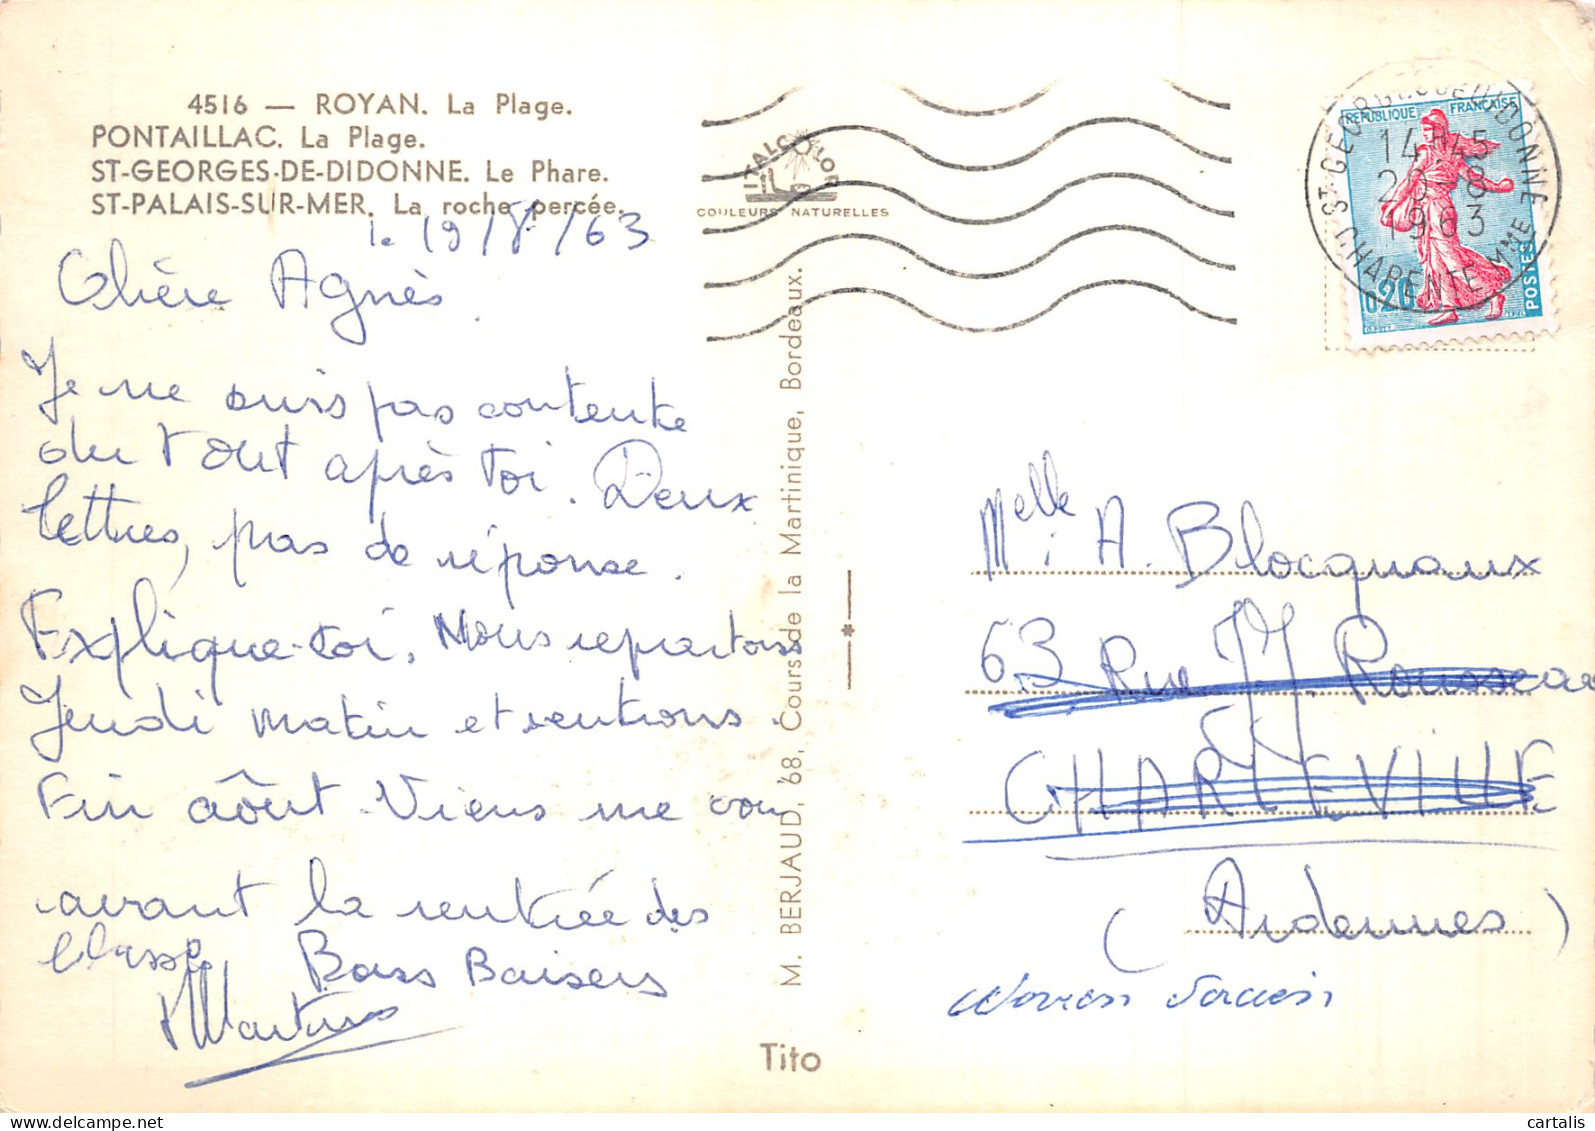 4516 — ROYAN. La Plage.
PONTAILLAC. La Plage.
ST-GEORGES-DE-DIDONNE. Le Phare.
ST-PALAIS-SUR-MER. La roche percée.
le 19/8/63
Chère Agnès.
Je ne suis pas contente
du tout après toi. Deux
lettres, pas de réponse.
Explique-toi. Nous repartons
Jeudi matin et rentrons
Fin août. Viens me voir
avant la rentrée des
classes Bons Baisers
Martine
ITALCOLOR
COULEURS NATURELLES
M. BERJAUD, 68, Cours de la Martinique, Bordeaux.
Tito
ST GEORGES DE DIDONNE
14H45
20-8
1963
CHARENTE MME
REPUBLIQUE FRANÇAISE
0,20
POSTES
Melle A. Blocquaux
63 Rue JJ. Rousseau
CHARLEVILLE
(Ardennes)
delcampe.net
cartalis